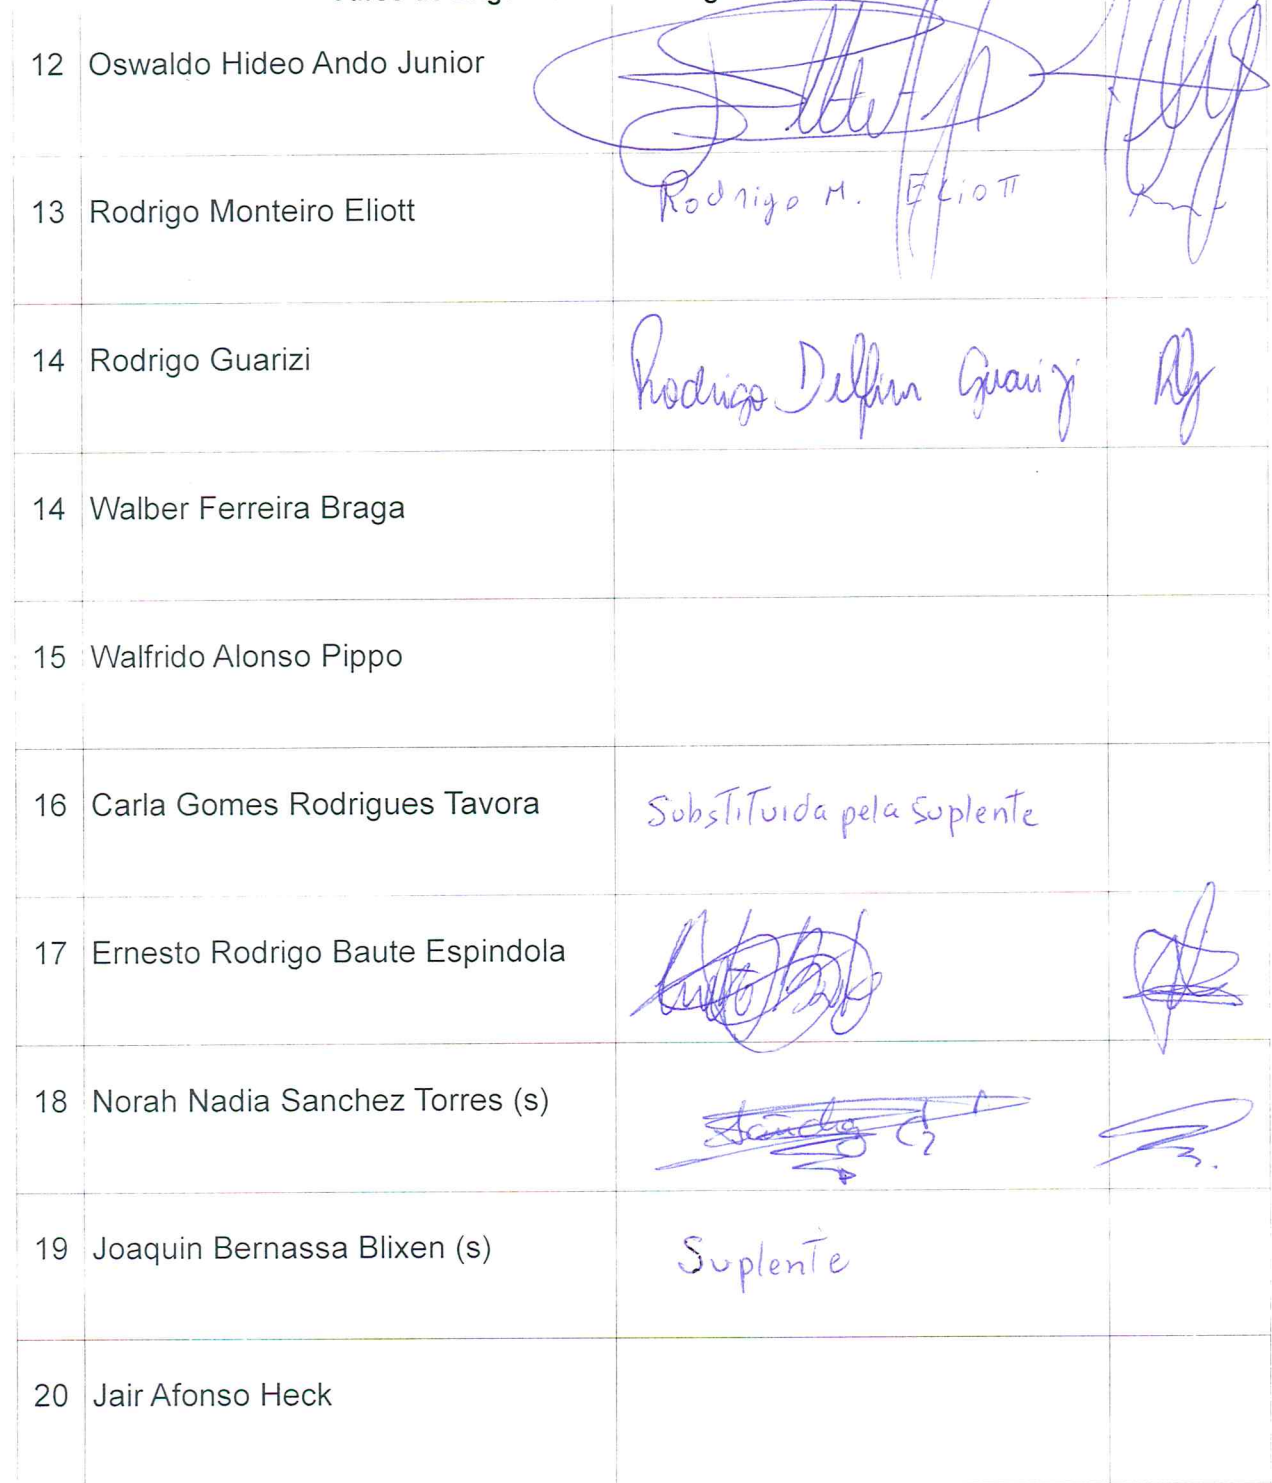 12 Oswaldo Hideo Ando Junior
13 Rodrigo Monteiro Eliott Rodrigo M. Eliott
14 Rodrigo Guarizi Rodrigo Delfim Guarizi RG
14 Walber Ferreira Braga
15 Walfrido Alonso Pippo
16 Carla Gomes Rodrigues Tavora Substituida pela suplente
17 Ernesto Rodrigo Baute Espindola
18 Norah Nadia Sanchez Torres (s)
19 Joaquin Bernassa Blixen (s) Suplente
20 Jair Afonso Heck